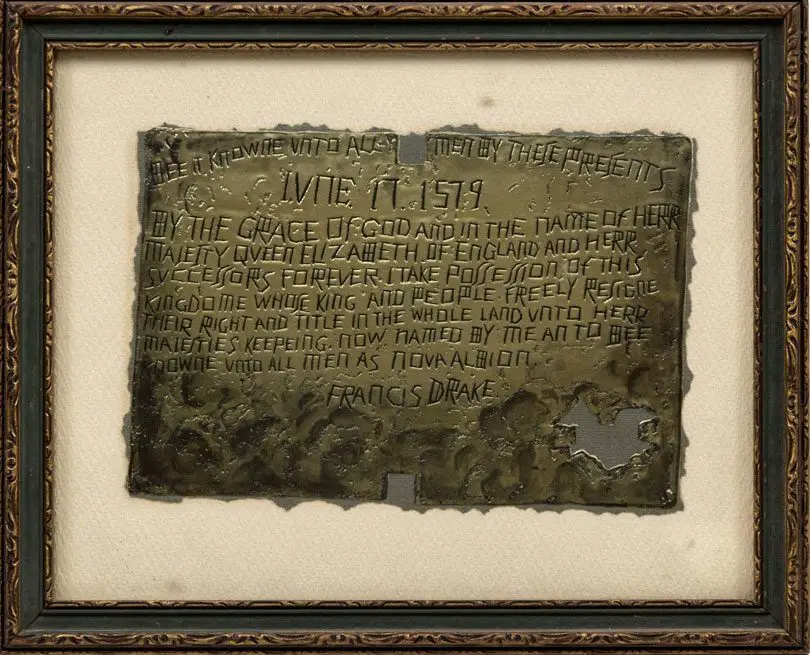 BEE IT KNOWNE VNTO ALL MEN BY THESE PRESENTS
IVNE 17 1579
BY THE GRACE OF GOD AND IN THE NAME OF HERR
MAIESTY QVEEN ELIZABETH OF ENGLAND AND HERR
SVCCESSORS FOREVER. I TAKE POSSESSION OF THIS
KINGDOME WHOSE KING AND PEOPLE FREELY RESIGNE
THEIR RIGHT AND TITLE IN THE WHOLE LAND VNTO HERR
MAIESTIES KEEPEING. NOW NAMED BY ME AN TO BEE
KNOWNE VNTO ALL MEN AS NOVA ALBION.
FRANCIS DRAKE.